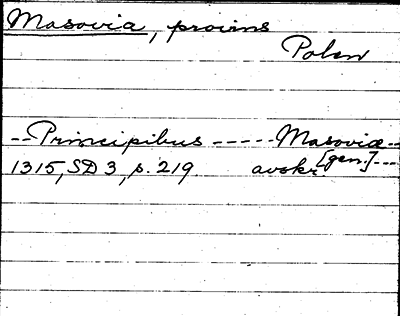 Masovia, provins
Polen
-- Principibus ----- Masoviæ --
1315, SD 3, p. 219. avskr. [gen.] ---